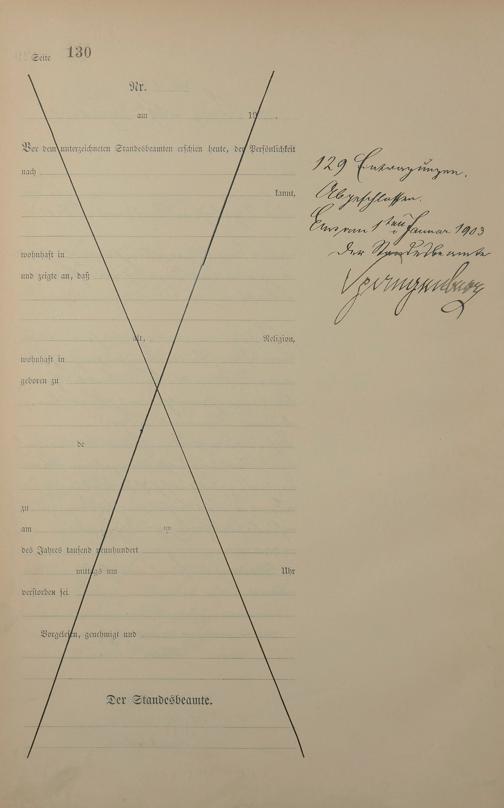 Seite 130
Nr.
am 19 .
Vor dem unterzeichneten Standesbeamten erschien heute, der Persönlichkeit
nach
kannt,
wohnhaft in
und zeigte an, daß
alt, Religion,
wohnhaft in
geboren zu
de
zu
am
des Jahres tausend neunhundert
mittags um Uhr
verstorben sei.
Vorgelesen, genehmigt und
Der Standesbeamte.
129 Eintragungen.
Abgeschlossen.
am 1ten Januar 1903
Der Standesbeamte